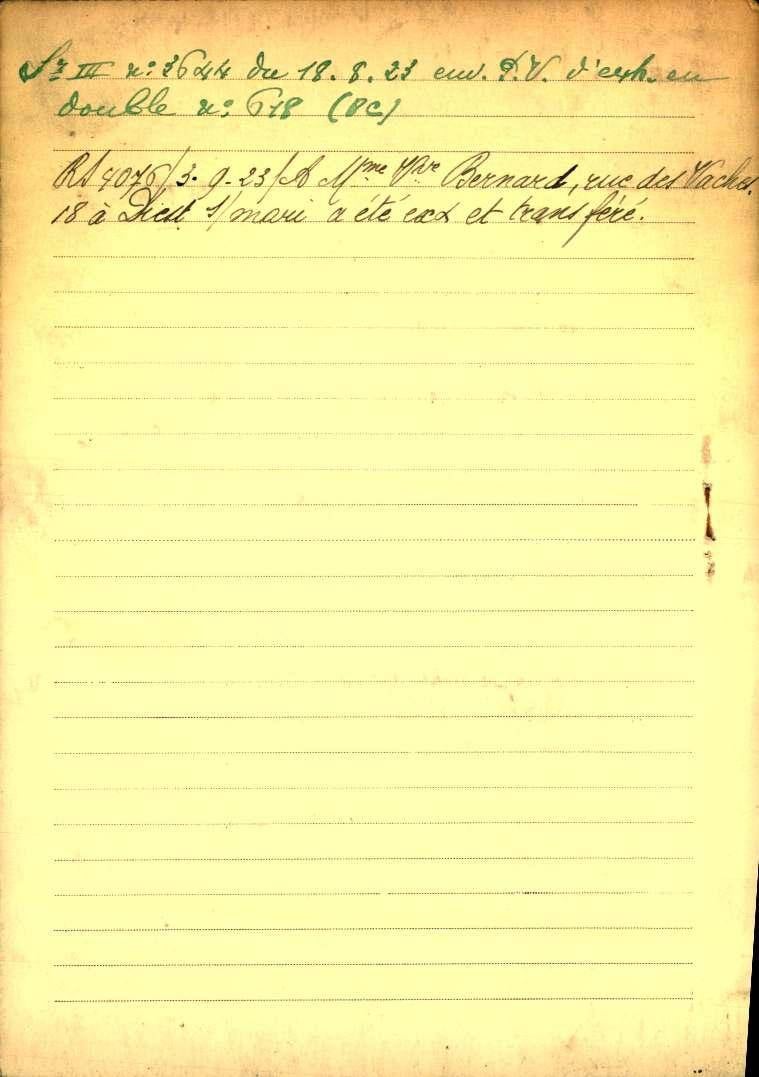 Sr III n: 3644 du 18.8.23 env. P.V. d'exh. en
double n: 678 (DC)
RS 4076/3-9-23/A Mme Vve Bernard, rue des Vaches,
18 à Diest S/mari a été exh et transféré.